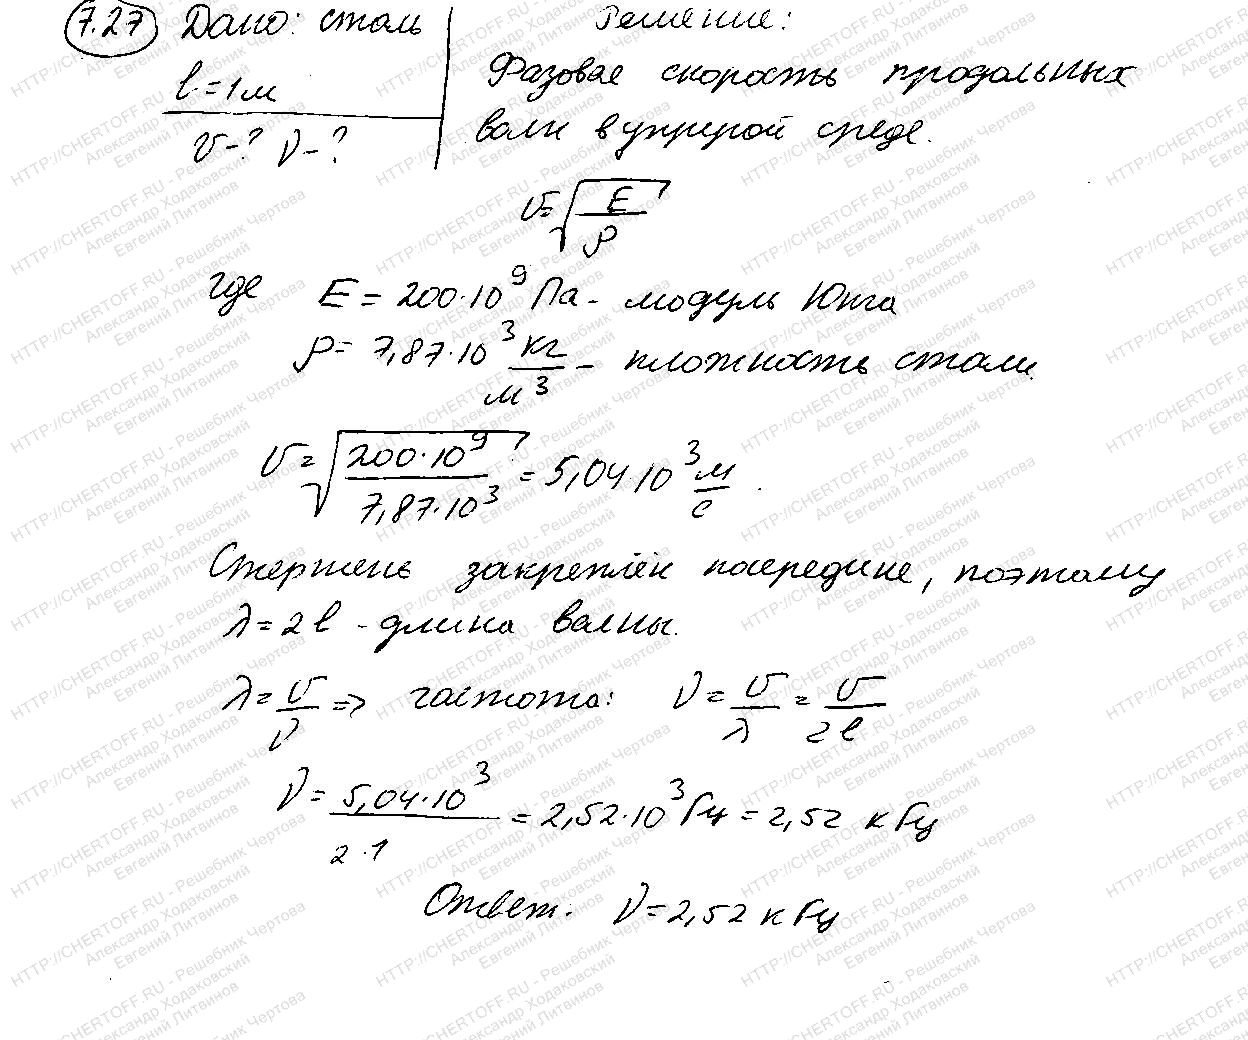 7.27 Дано: сталь Решение:
l = 1м
υ-? ν-?
Фазовая скорость продольных
волн в упругой среде.
υ = √(E/ρ)
где E = 200·10⁹ Па - модуль Юнга
ρ = 7,87·10³ кг/м³ - плотность стали.
υ = √(200·10⁹/7,87·10³) = 5,04·10³ м/с.
Стержень закреплён посередине, поэтому
λ = 2l - длина волны.
λ = υ/ν => частота: ν = υ/λ = υ/2l
ν = 5,04·10³/2·1 = 2,52·10³ Гц = 2,52 кГц
Ответ: ν = 2,52 кГц
HTTP://CHERTOFF.RU - Решебник Чертова
Александр Ходаковский
Евгений Литвинов